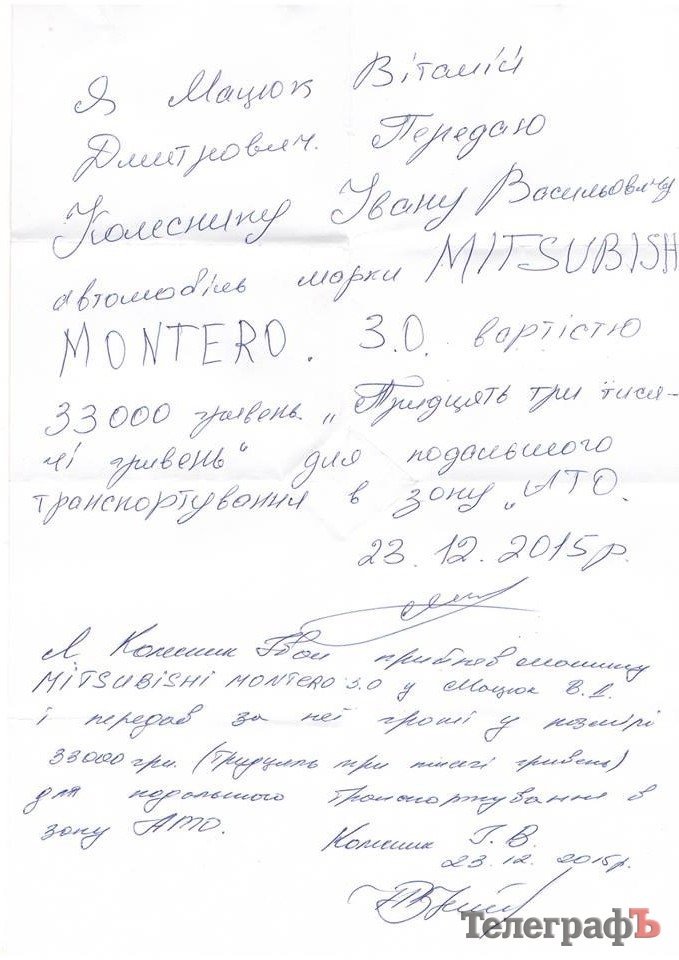 Я Мацюк Віталій
Дмитрович. Передаю
Колеснику Івану Васильовичу
автомобіль марки MITSUBISH
MONTERO. 3.0. вартістю
33000 гривень. „Тридцять три тися-
чі гривень“ для подальшого
транспортування в зону „АТО.
23.12.2015р.
Я Колесник Іван прийняв машину
MITSUBISHI MONTERO 3.0 у Мацюк В.Д.
і передав за неї гроші у розмірі
33000 грн. (тридцять три тисячі гривень)
для подальшого транспортування в
зону АТО.
Колесник І. В.
23.12. 2015р.
ТелеграфЪ